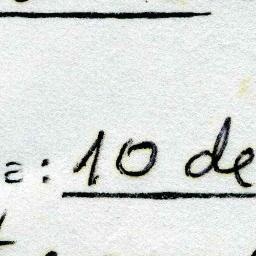 a: 10 de